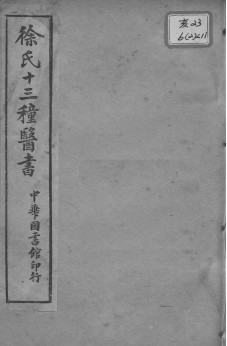 徐氏十三種醫書
中華圖書館印行
亥23
6(2):11